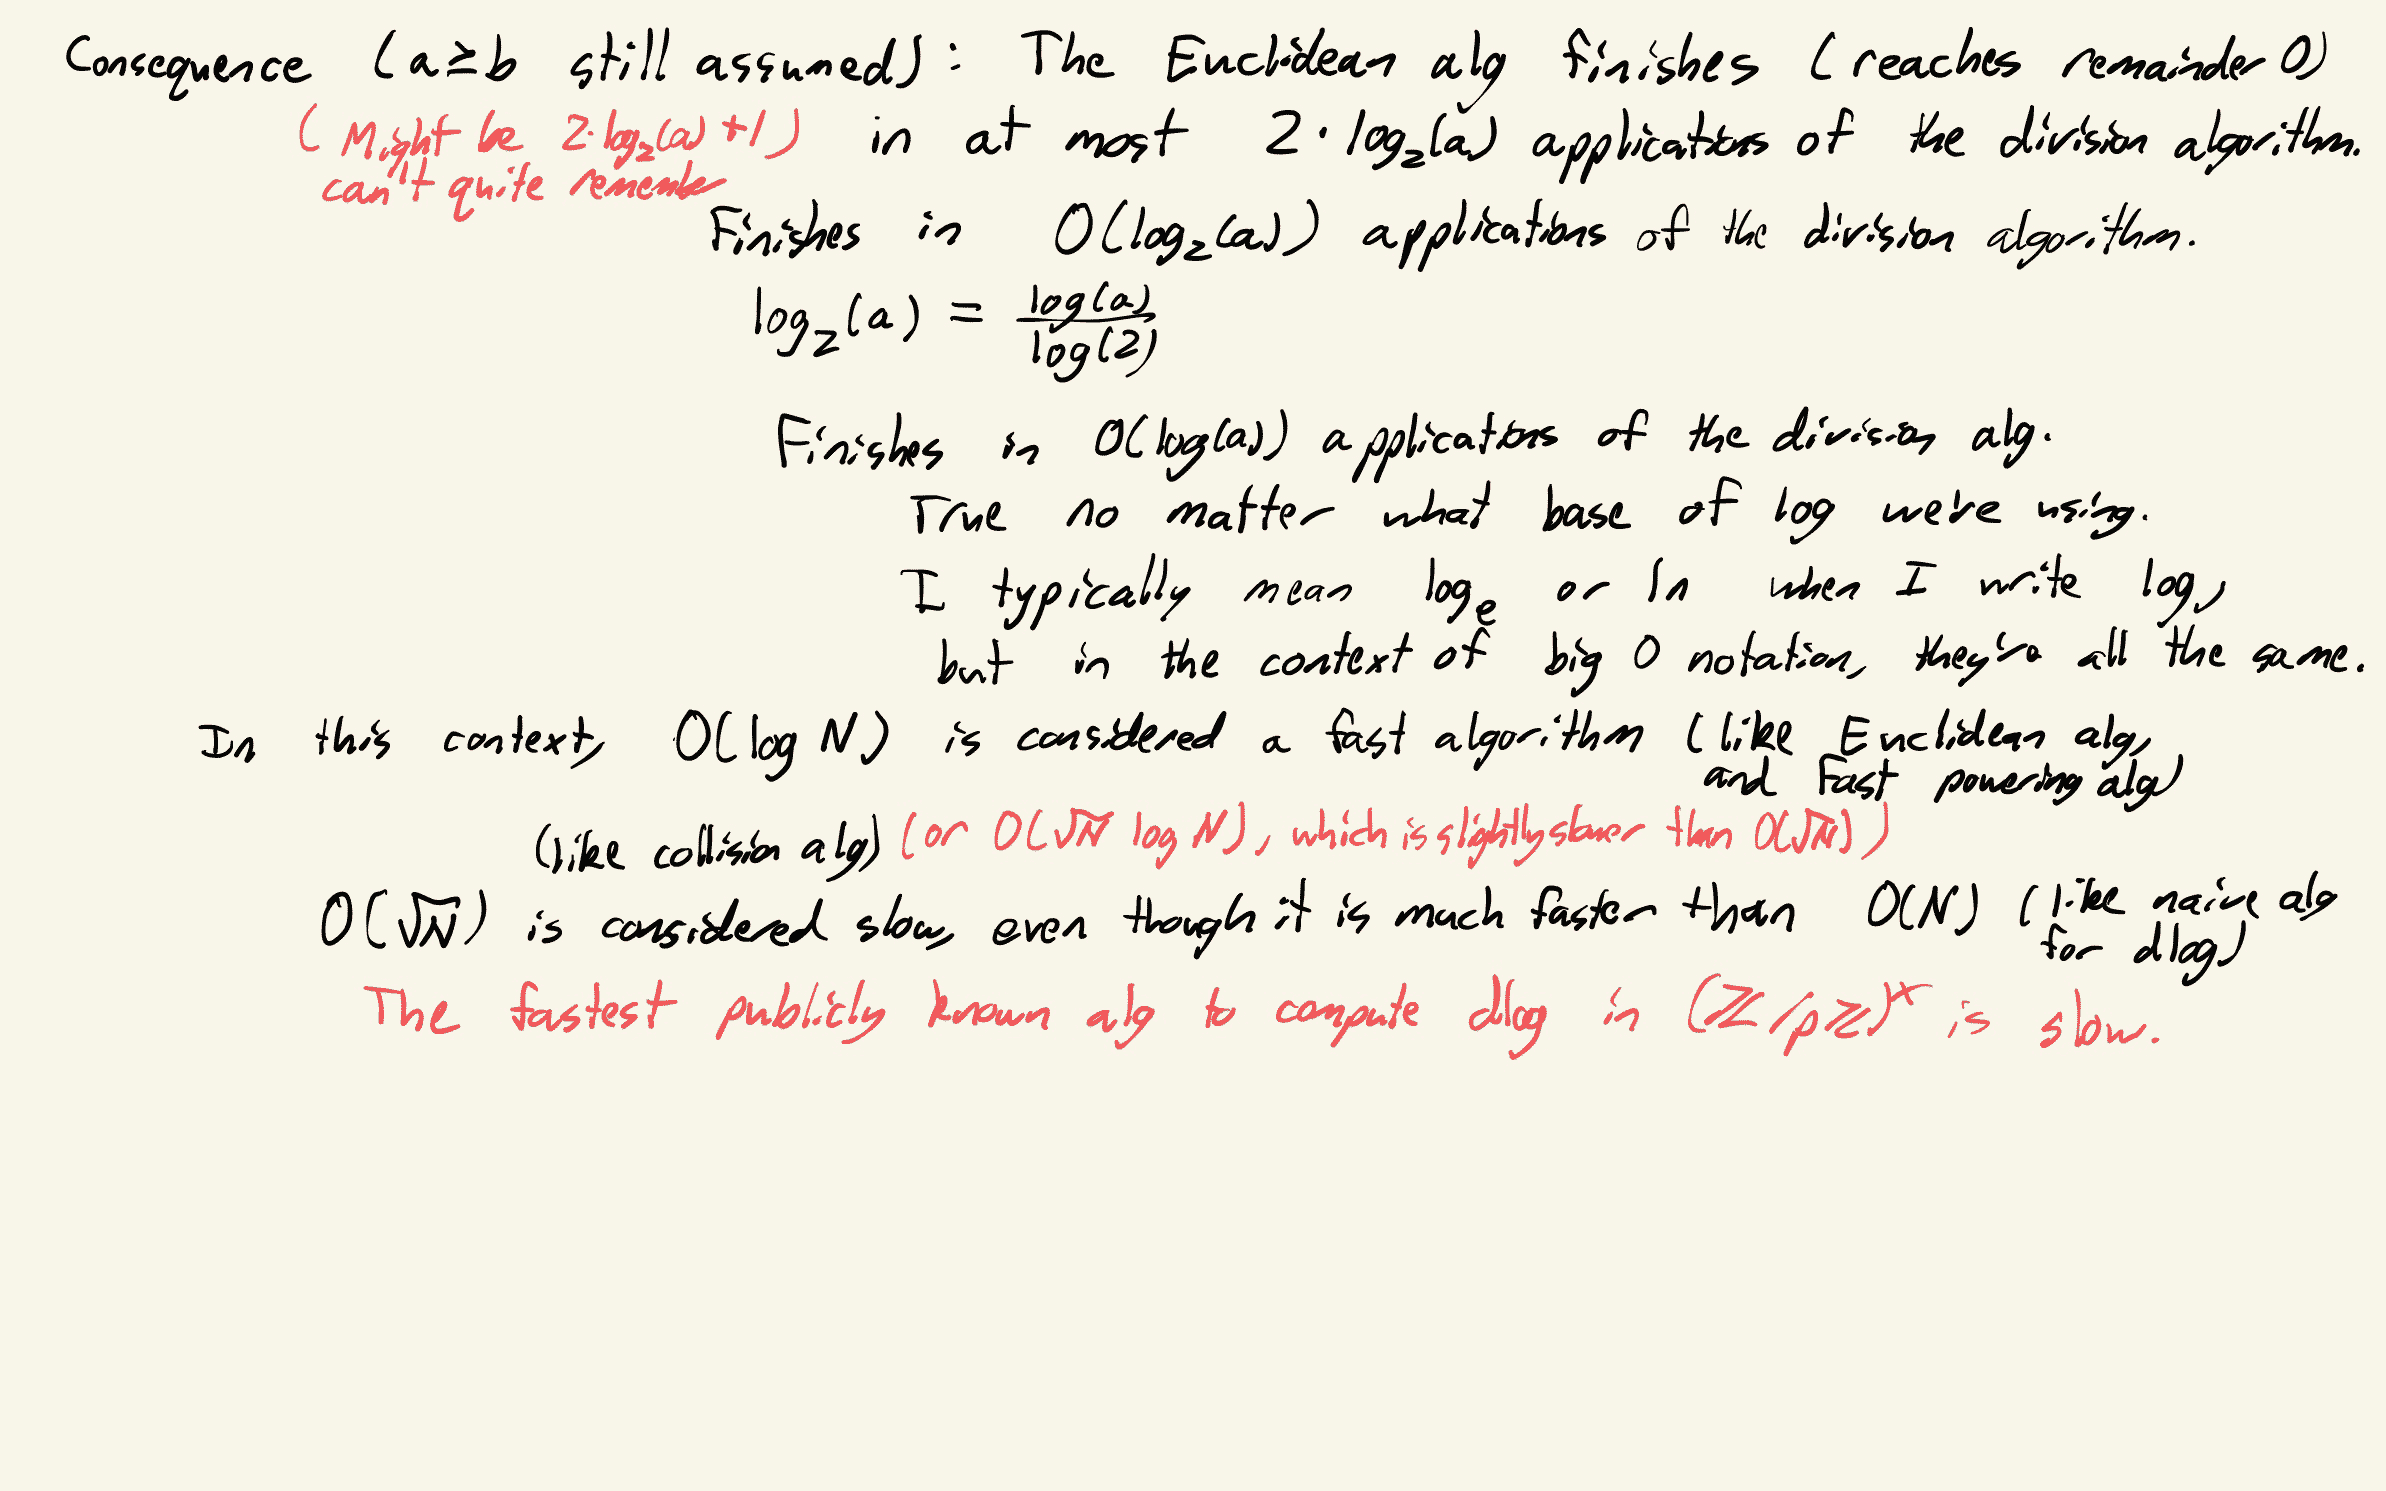 Consequence (a≥b still assumed): The Euclidean alg finishes (reaches remainder 0)
(Might be 2·log₂(a)+1) in at most 2·log₂(a) applications of the division algorithm.
can't quite remember
Finishes in O(log₂(a)) applications of the division algorithm.
log₂(a) = log(a)/log(2)
Finishes in O(log(a)) applications of the division alg.
True no matter what base of log we're using.
I typically mean logₑ or ln when I write log,
but in the context of big O notation, they're all the same.
In this context, O(log N) is considered a fast algorithm (like Euclidean alg,
and Fast powering alg)
(like collision alg) (or O(√N log N), which is slightly slower than O(√N))
O(√N) is considered slow, even though it is much faster than O(N) (like naive alg
for dlog)
The fastest publicly known alg to compute dlog in (ℤ/pℤ)ˣ is slow.